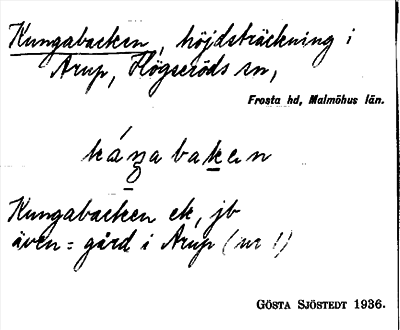 Kungabacken, höjdsträckning i
Arup, Högseröds sn,
Frosta hd, Malmöhus län.
káŋabaken
Kungabacken ek, jb
även = gård i Arup (nr 1)
GÖSTA SJÖSTEDT 1936.